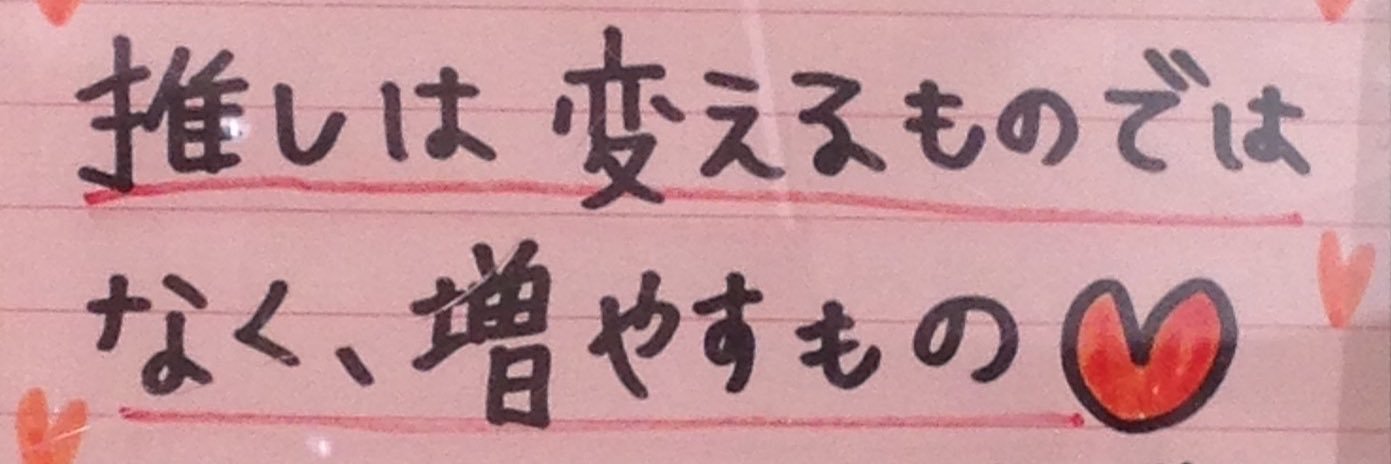 推しは変えるものでは
なく、増やすもの♥